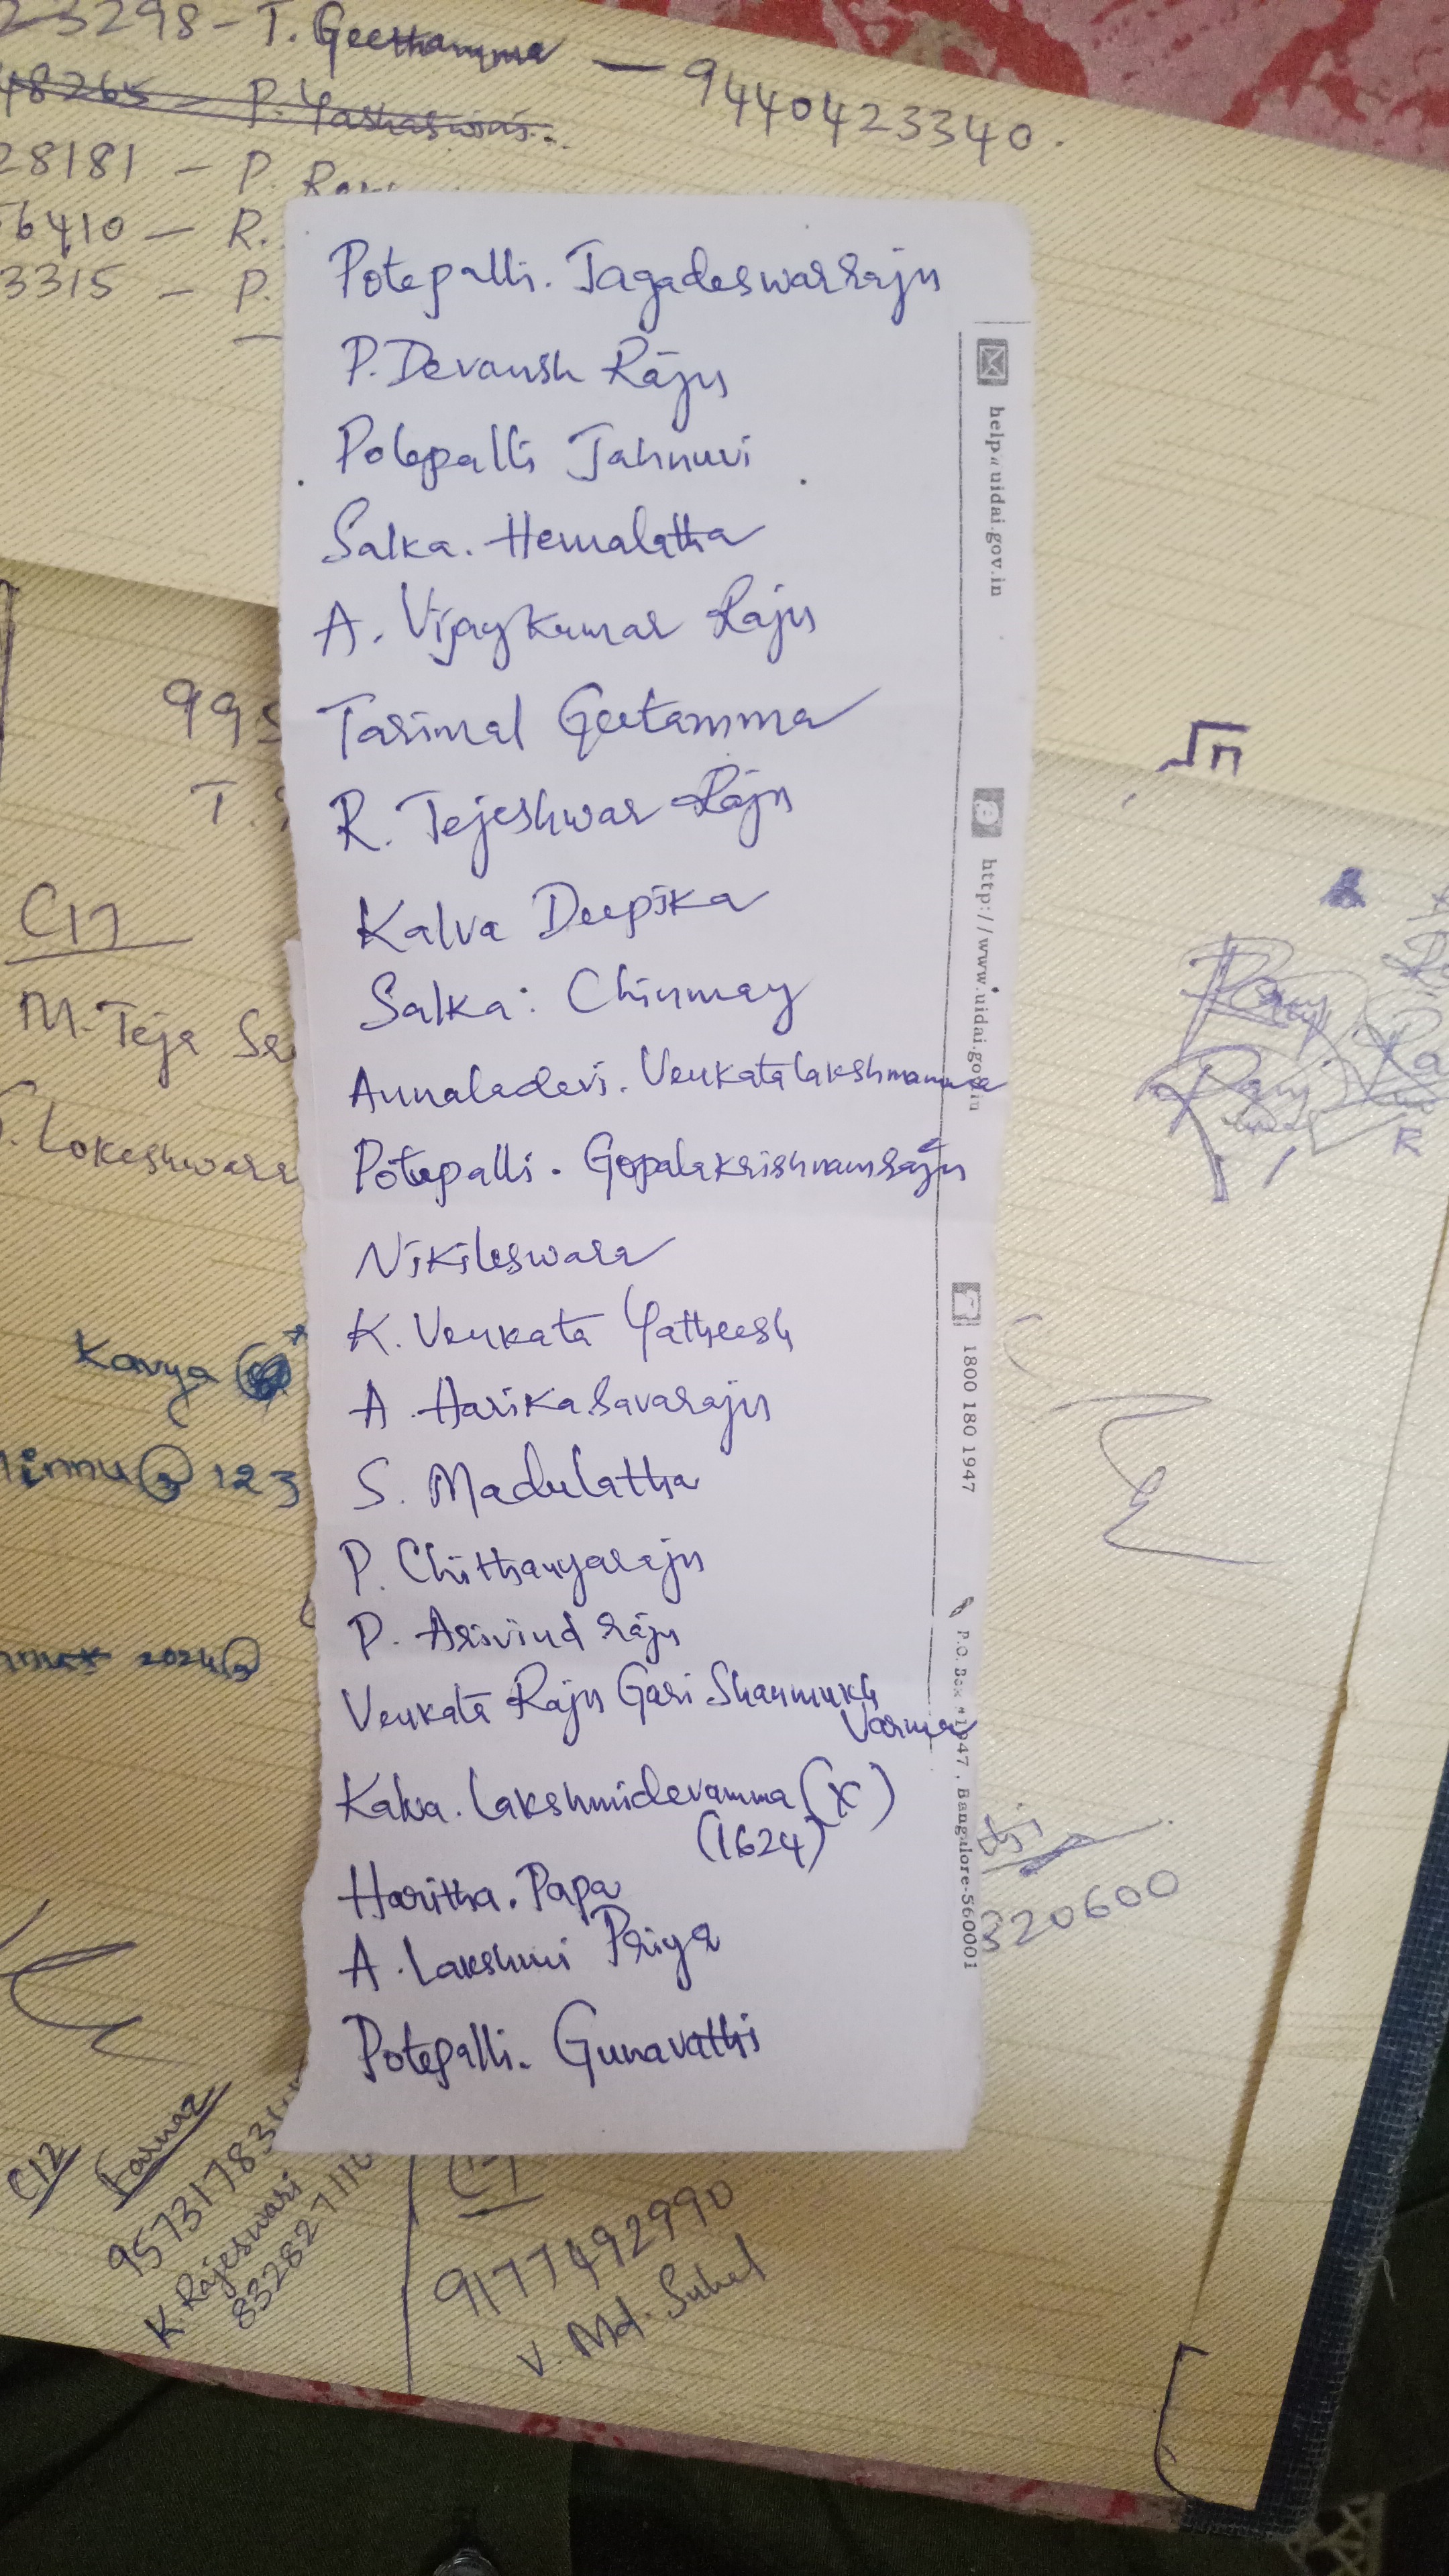 23298 - T. Geethamma - 9440423340.
48265 - P. Yashaswini.
28181 - P.
56410 - R.
3315 - P.
Potepalli. Jagadeswarraju
P. Devansh Raju
Potepalli Jahnuvi
Salka. Hemalatha
A. Vijaykumar Raju
Tarimal Geetamma
R. Tejeshwar Raju
Kalva Deepika
Salka: Chinmay
Annaladevi. Venkatalakshmamma
Potepalli. Gopalakrishnamraju
Nikileswara
K. Venkata Yatheesh
A. Harika Savaraju
S. Madulatha
P. Chithanyaraju
P. Arivind raju
Venkata Raju Gari Shanmukh
Varma
Kalva. Lakshmidevamma (X)
(1624)
Haritha. Papa
A. Lakshmi Priya
Potepalli. Gunavathi
help@uidai.gov.in
http://www.uidai.gov.in
1800 180 1947
P.O. Box #1947, Bangalore-560001
995
T.
C17
M. Teja Sa
Lokeshwara
Kavya @
innu@123
2024@
320600
C12
Farnaz
95731783
K. Rajeswari
83282711
9177492990
V. Md. Suhel